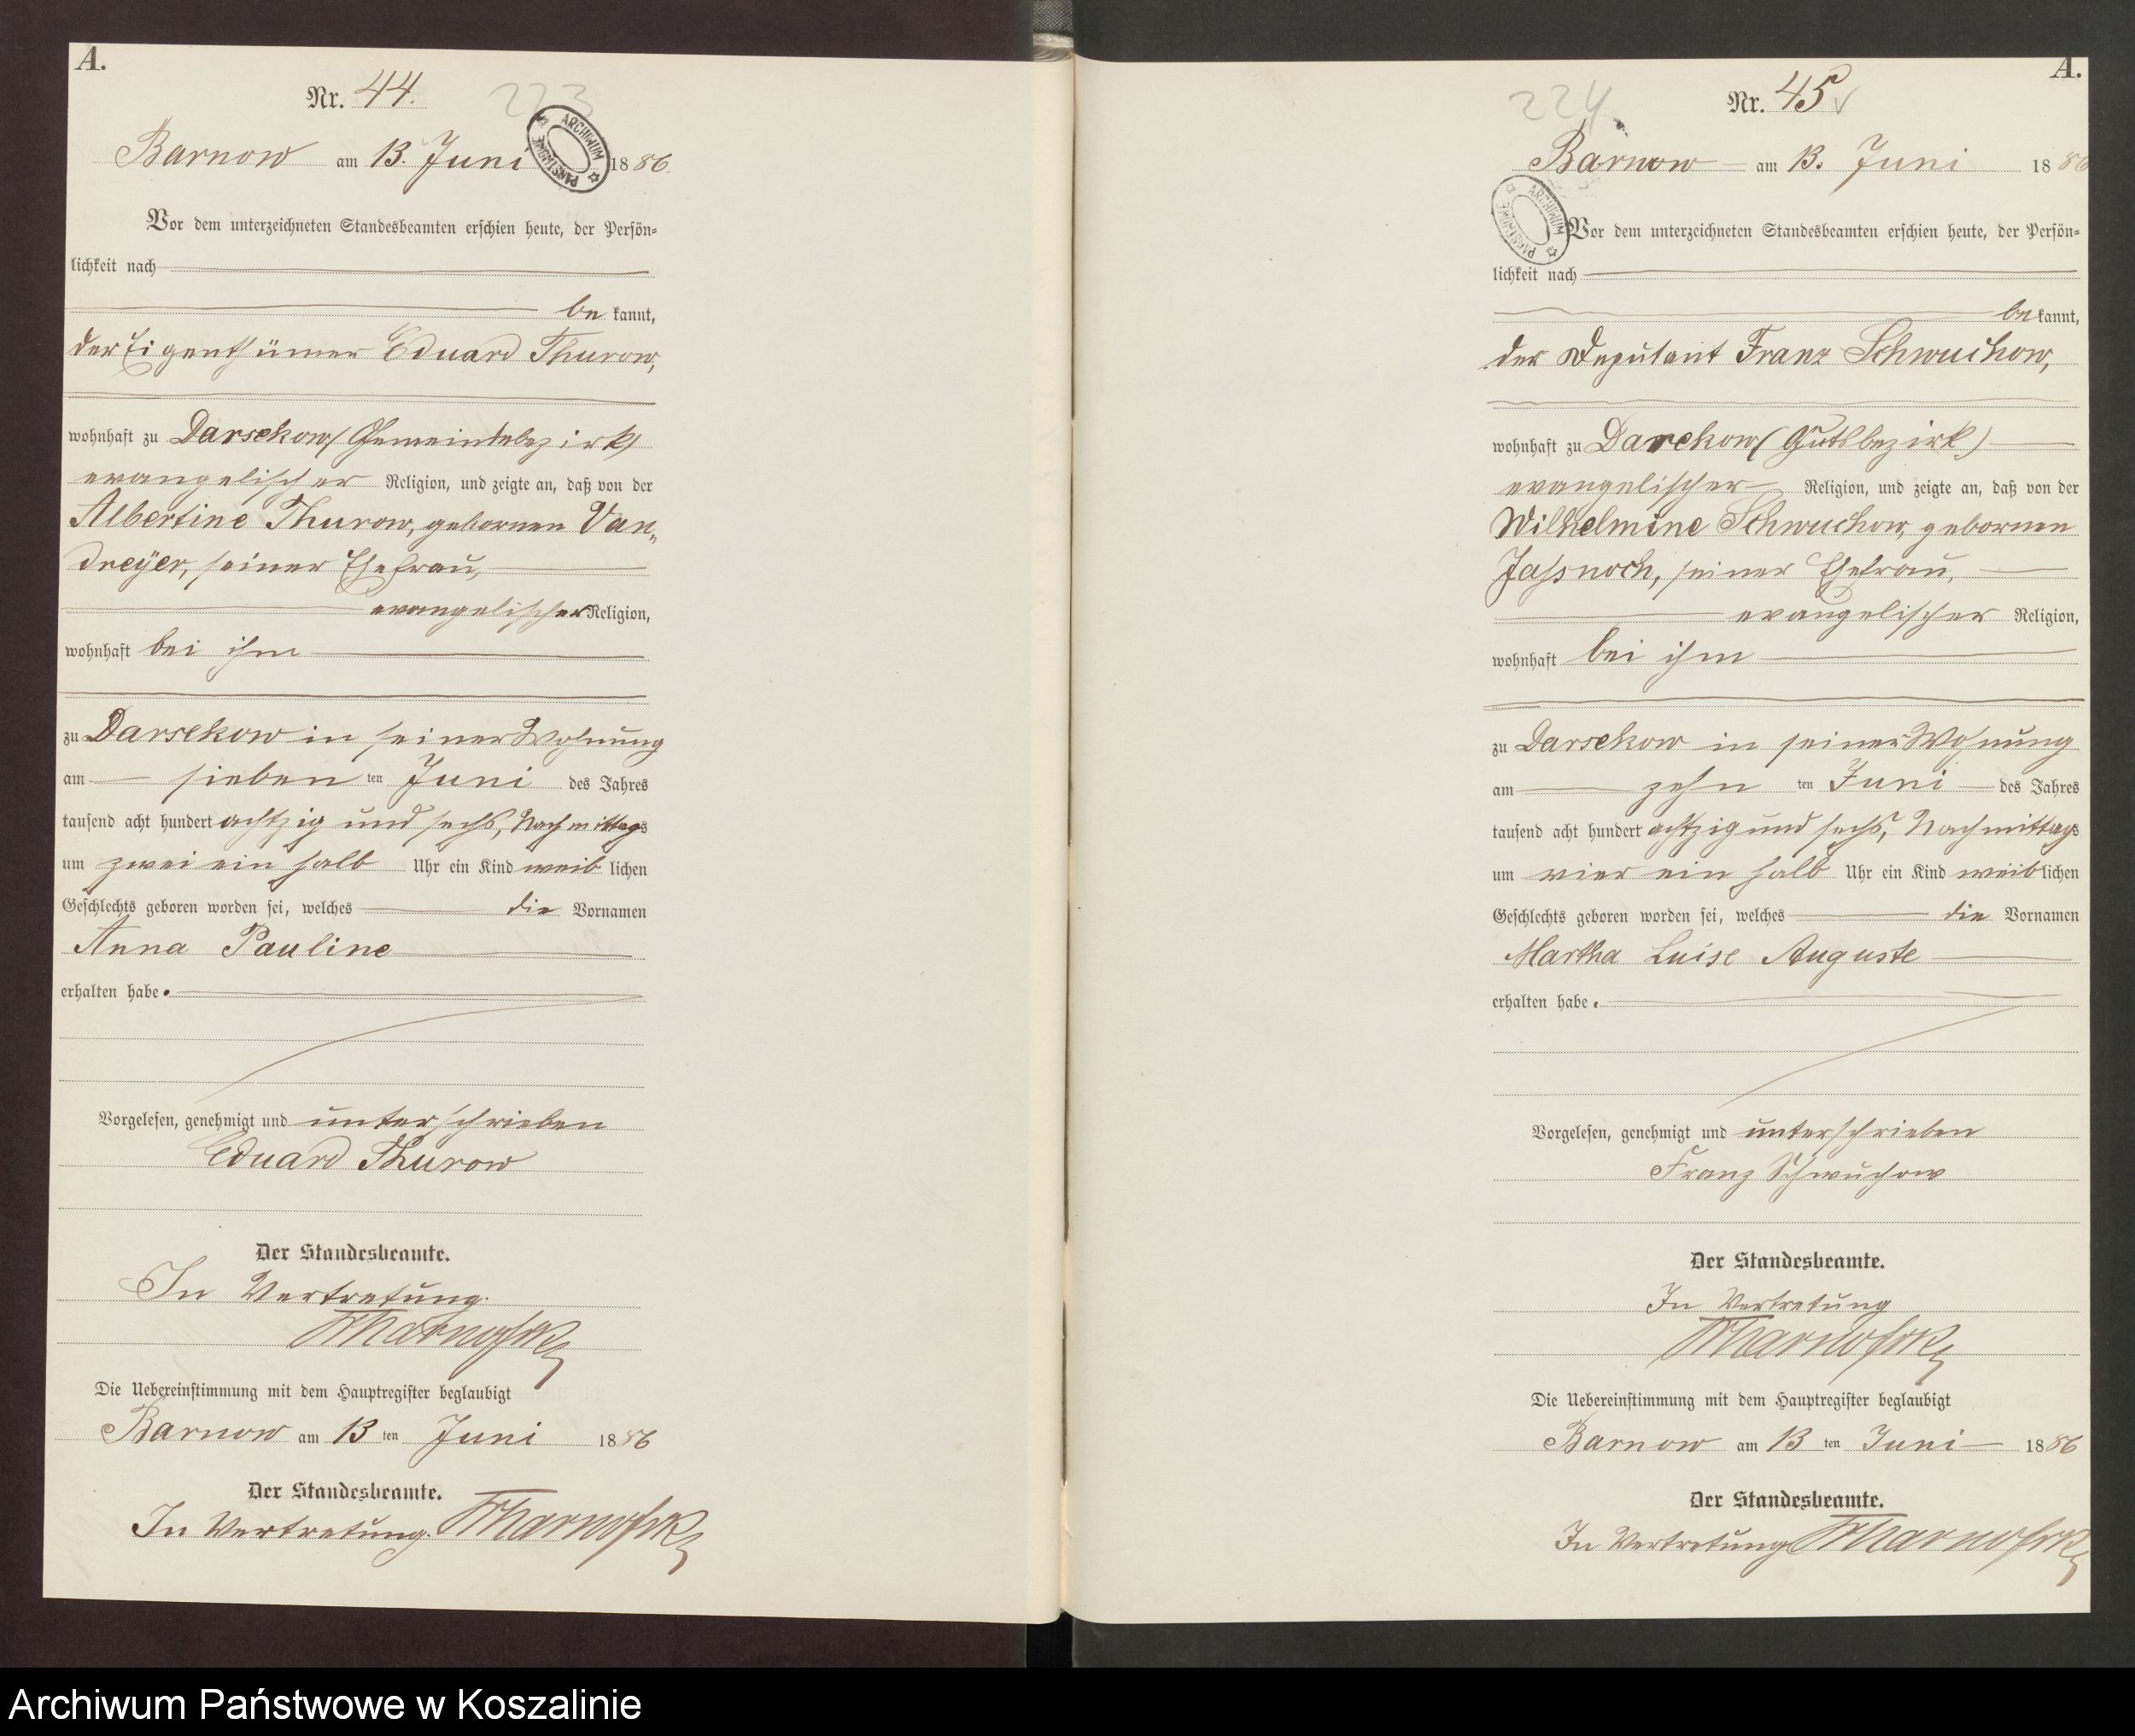 A.
Nr. 44.
223
ARCHIWUM PAŃSTWOWE
Barnow am 13. Juni 1886.
Vor dem unterzeichneten Standesbeamten erschien heute, der Persön-
lichkeit nach
be kannt,
der Eigenthümer Eduard Thurow,
wohnhaft zu Darsekow (Gemeindebezirk)
evangelischer Religion, und zeigte an, daß von der
Albertine Thurow, gebornen Van-
dreÿer, seiner Ehefrau,
evangelischer Religion,
wohnhaft bei ihm
zu Darsekow in seiner Wohnung
am sieben ten Juni des Jahres
tausend acht hundert achtzig und sechs, Nachmittags
um zwei ein halb Uhr ein Kind weib lichen
Geschlechts geboren worden sei, welches die Vornamen
Anna Pauline
erhalten habe.
Vorgelesen, genehmigt und unterschrieben
Eduard Thurow
Der Standesbeamte.
In Vertretung.
Die Uebereinstimmung mit dem Hauptregister beglaubigt
Barnow am 13 ten Juni 1886
Der Standesbeamte.
In Vertretung.
A.
224
Nr. 45
Barnow am 13. Juni 1886
ARCHIWUM PAŃSTWOWE
Vor dem unterzeichneten Standesbeamten erschien heute, der Persön-
lichkeit nach
be kannt,
der Deputant Franz Schwuchow,
wohnhaft zu Darekow (Gutsbezirk)
evangelischer Religion, und zeigte an, daß von der
Wilhelmine Schwuchow, gebornen
Jassnoch, seiner Ehefrau,
evangelischer Religion,
wohnhaft bei ihm
zu Darsekow in seiner Wohnung
am zehn ten Juni des Jahres
tausend acht hundert achtzig und sechs, Nachmittags
um vier ein halb Uhr ein Kind weiblichen
Geschlechts geboren worden sei, welches die Vornamen
Martha Luise Auguste
erhalten habe.
Vorgelesen, genehmigt und unterschrieben
Franz Schwuchow
Der Standesbeamte.
In Vertretung
Die Uebereinstimmung mit dem Hauptregister beglaubigt
Barnow am 13 ten Juni 1886
Der Standesbeamte.
In Vertretung
Archiwum Państwowe w Koszalinie